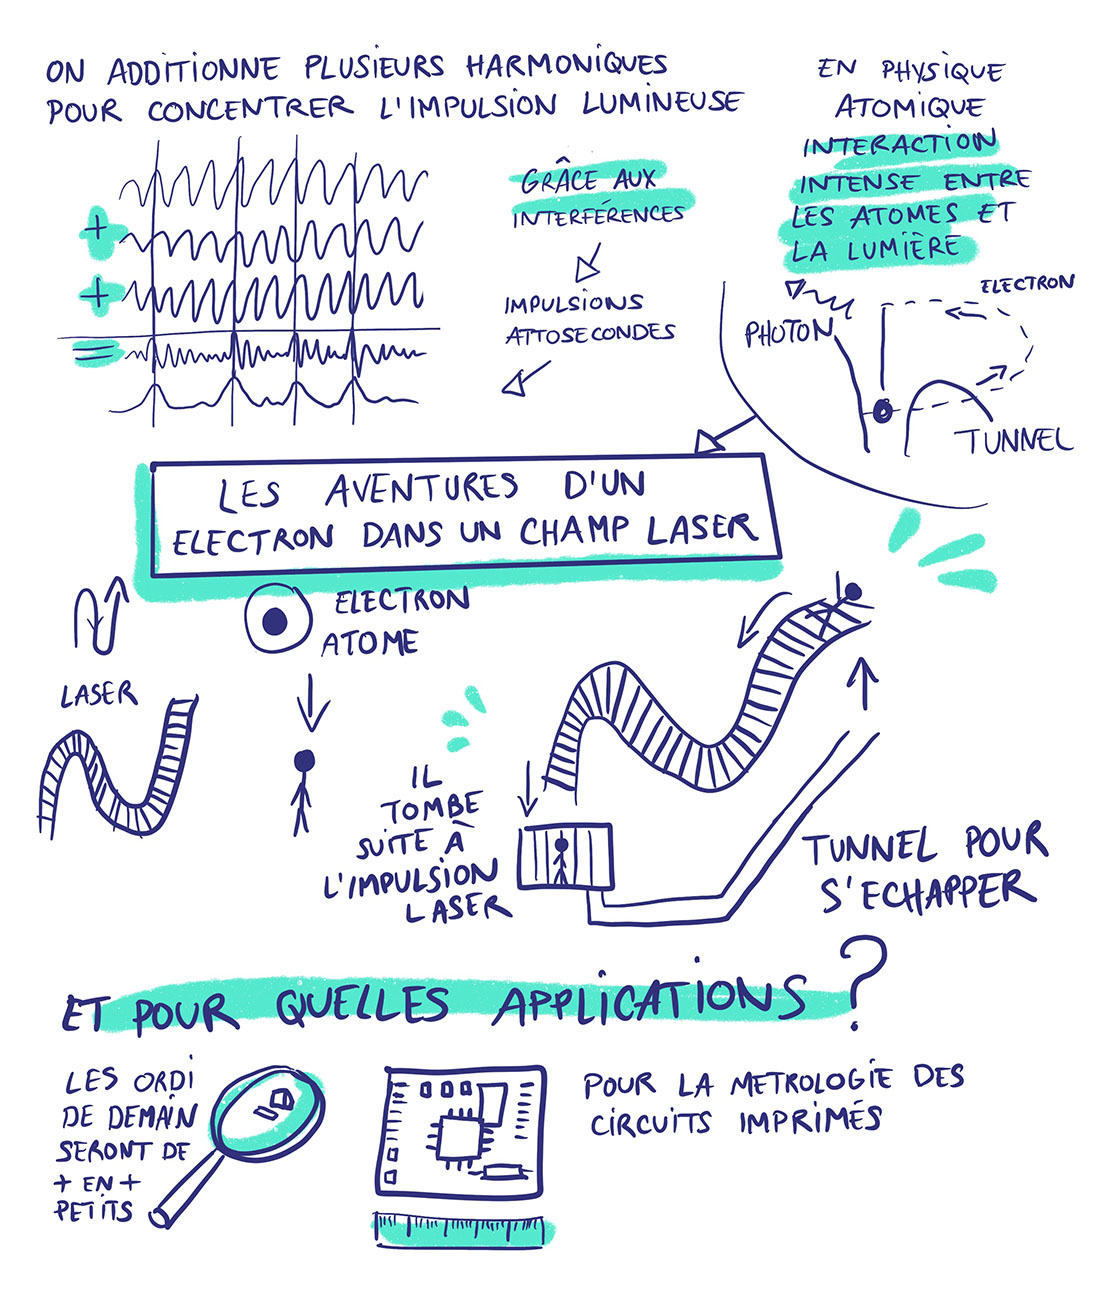 ON ADDITIONNE PLUSIEURS HARMONIQUES
POUR CONCENTRER L'IMPULSION LUMINEUSE
+
+
=
GRÂCE AUX
INTERFÉRENCES
IMPULSIONS
ATTOSECONDES
EN PHYSIQUE
ATOMIQUE
INTERACTION
INTENSE ENTRE
LES ATOMES ET
LA LUMIÈRE
ELECTRON
PHOTON
TUNNEL
LES AVENTURES D'UN
ELECTRON DANS UN CHAMP LASER
LASER
ELECTRON
ATOME
IL
TOMBE
SUITE À
L'IMPULSION
LASER
TUNNEL POUR
S'ECHAPPER
ET POUR QUELLES APPLICATIONS ?
LES ORDI
DE DEMAIN
SERONT DE
+ EN +
PETITS
POUR LA METROLOGIE DES
CIRCUITS IMPRIMÉS